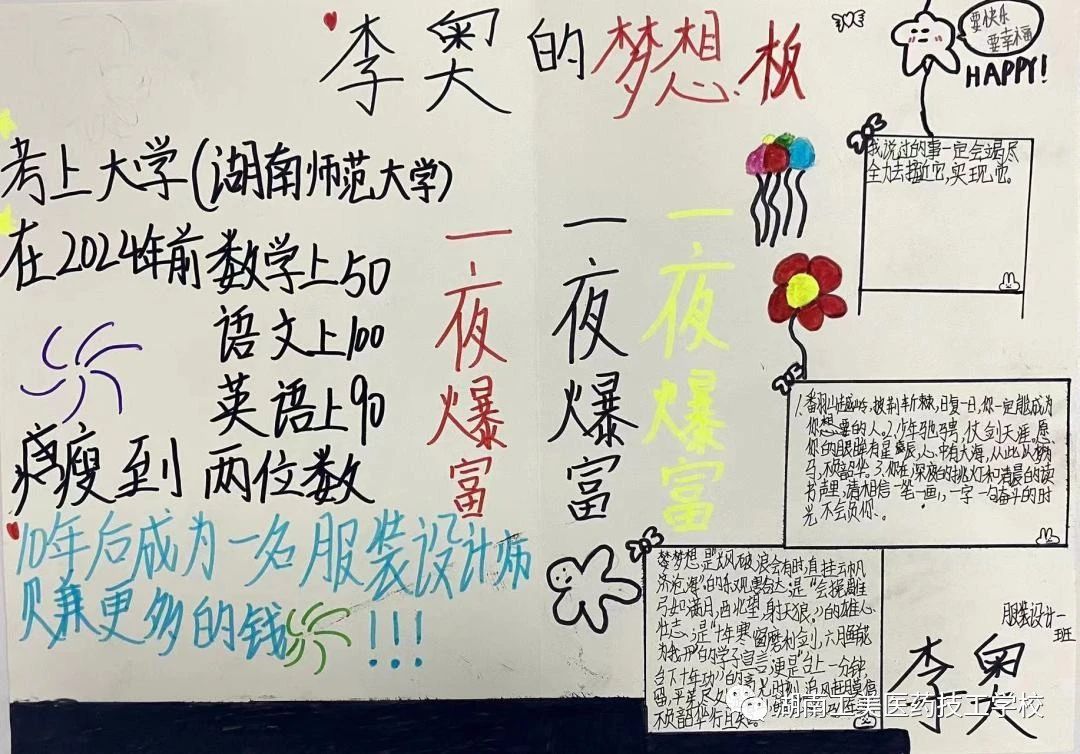 李奥的梦想板
要快乐
要幸福
HAPPY!
考上大学(湖南师范大学)
在2024年前数学上50
语文上100
英语上90
瘦到两位数
10年后成为一名服装设计师
赚更多的钱!!!
一夜爆富
一夜爆富
一夜爆富
我说过的事一定会竭尽
全力去接近它,实现它。
1.翻山越岭,披荆斩棘,日复一日,你一定能成为
你想要的人。2.少年驰骋,仗剑天涯。愿
你的眼眸有星辰,心中有大海,从此以梦为
马,不负韶华。3.你在深夜的挑灯和清晨的读
书声里,请相信一笔一画,一字一句奋斗的时
光不会负你。
梦梦想是"长风破浪会有时,直挂云帆
济沧海"的乐观豁达;是"会挽雕
弓如满月,西北望,射天狼。"的雄心
壮志;是"十年寒窗磨利剑,六月
为我开"的学子宣言;更是"台上一分钟,
台下十年功"的
不负韶华行且
服装设计一
班
李奥
湖南工美医药技工学校